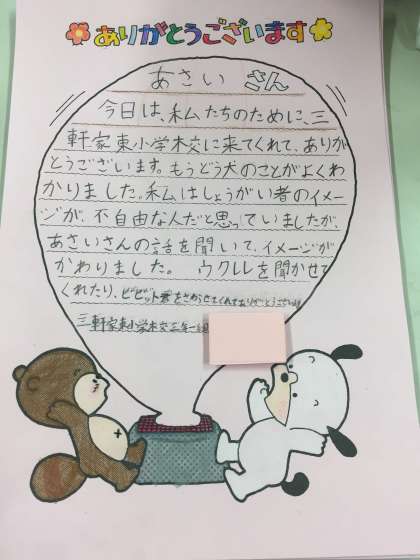 ありがとうございます
あさい さん
今日は、私たちのために、三
軒家東小学校に来てくれて、ありが
とうございます。もうどう犬のことがよくわ
かりました。私はしょうがい者のイメー
ジが、不自由な人だと思っていましたが、
あさいさんの話を聞いて、イメージが
かわりました。 ウクレレを聞かせて
くれたり、ビビット君をさわらせてくれてありがとうございます
三軒家東小学校三年一組